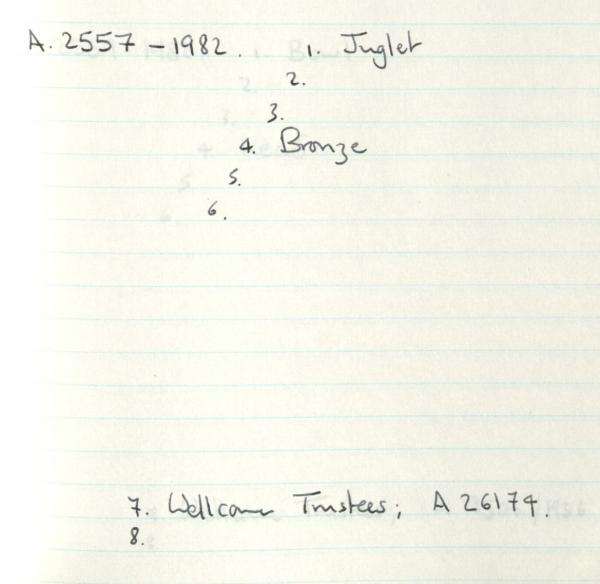 A. 2557 - 1982. 1. Juglet
2.
3.
4. Bronze
5.
6.
7. Wellcome Trustees; A 26174.
8.